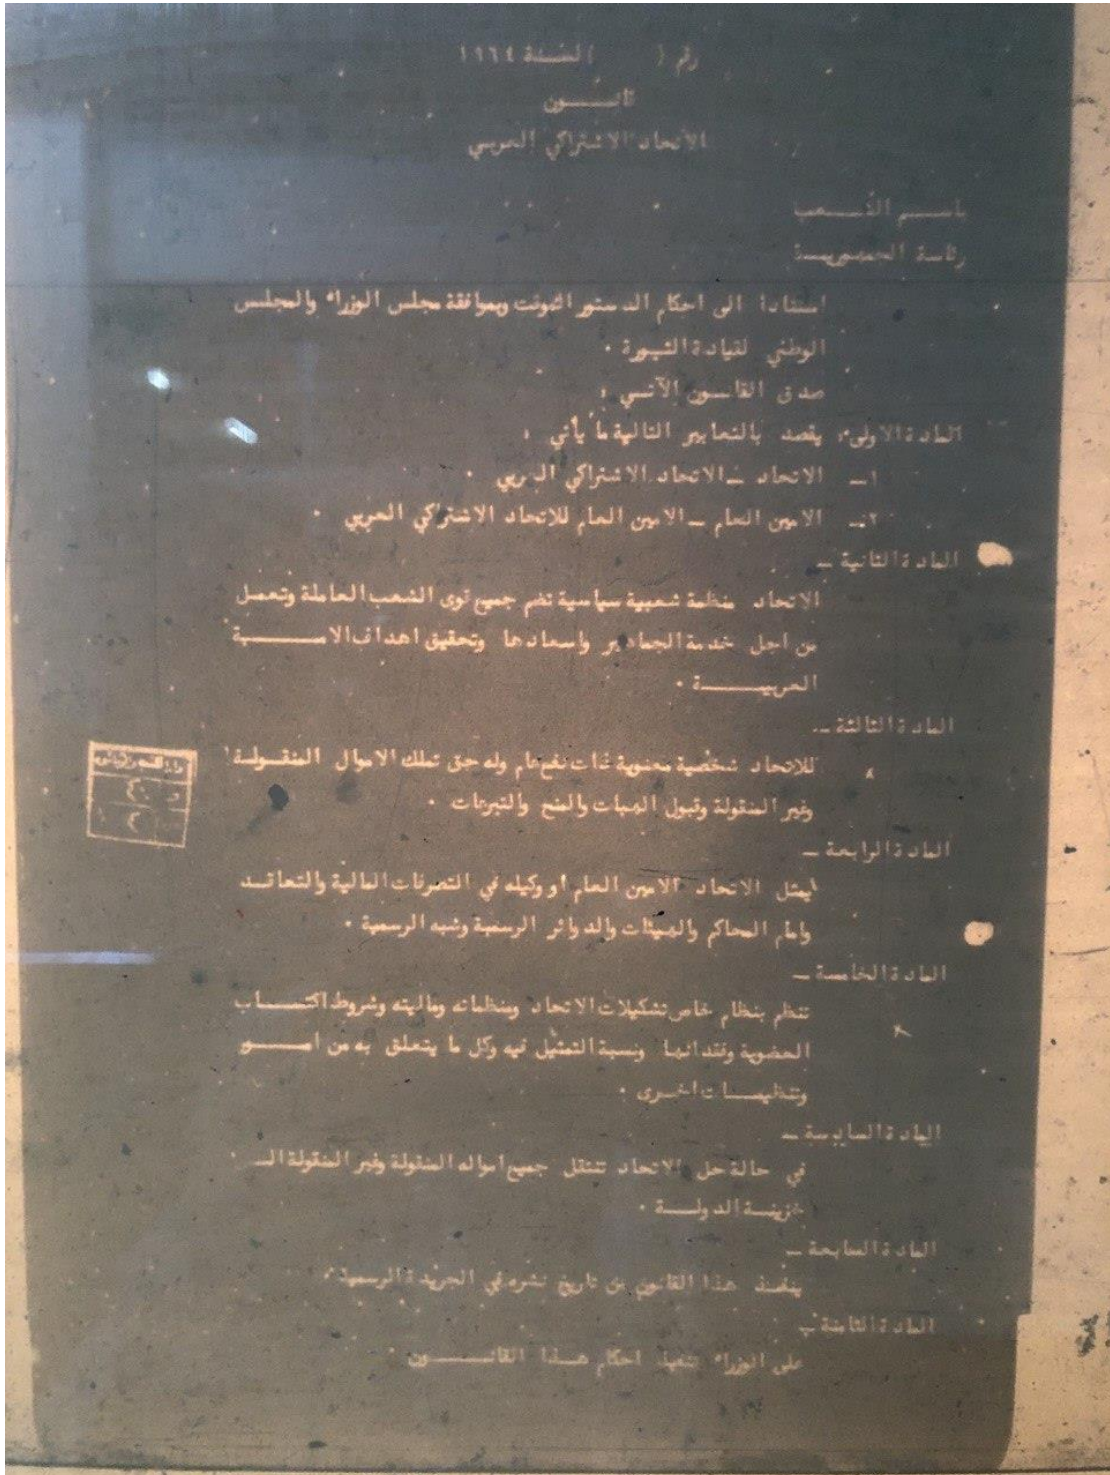 رقم (      ) لسنة ١٩٦٤
قانـــون
الاتحاد الاشتراكي العربي
باســـم الشـــعب
رئاسة الجمهوريـــة
استنادا الى احكام الدستور المؤقت وبموافقة مجلس الوزراء والمجلس
الوطني لقيادة الثـورة ٠
صدق القانـــون الآتـــي :
المادة الاولى ـ يقصد بالتعابير التالية ما يأتي :
١ـ الاتحاد ـ الاتحاد الاشتراكي العربي ٠
٢ـ الامين العام ـ الامين العام للاتحاد الاشتراكي العربي ٠
المادة الثانية ـ
الاتحاد منظمة شعبية سياسية تضم جميع قوى الشعب العاملة وتعمل
من اجل خدمة الجماهير واسعادها وتحقيق اهداف الامـــــة
العربيـــــة ٠
المادة الثالثة ـ
للاتحاد شخصية معنوية ذات نفع عام وله حق تملك الاموال المنقولـة
وغير المنقولة وقبول الهبات والمنح والتبرعات ٠
المادة الرابعة ـ
يمثل الاتحاد الامين العام او وكيله في التصرفات المالية والتعاقـد
وامام المحاكم والهيئات والدوائر الرسمية وشبه الرسمية ٠
المادة الخامسة ـ
تنظم بنظام خاص تشكيلات الاتحاد ومنظماته وماليته وشروط اكتســـاب
العضوية وفقدانها ونسبة التمثيل فيه وكل ما يتعلق به من امـــور
وتنظيمـــات اخـرى ٠
المادة السادسة ـ
في حالة حل الاتحاد تنتقل جميع امواله المنقولة وغير المنقولة الـ
خزينـة الدولـــة ٠
المادة السابعة ـ
ينفـذ هـذا القانون من تاريخ نشره في الجريدة الرسمية ٠
المادة الثامنة ـ
على الوزراء تنفيذ احكام هـــذا القانـــــون ٠